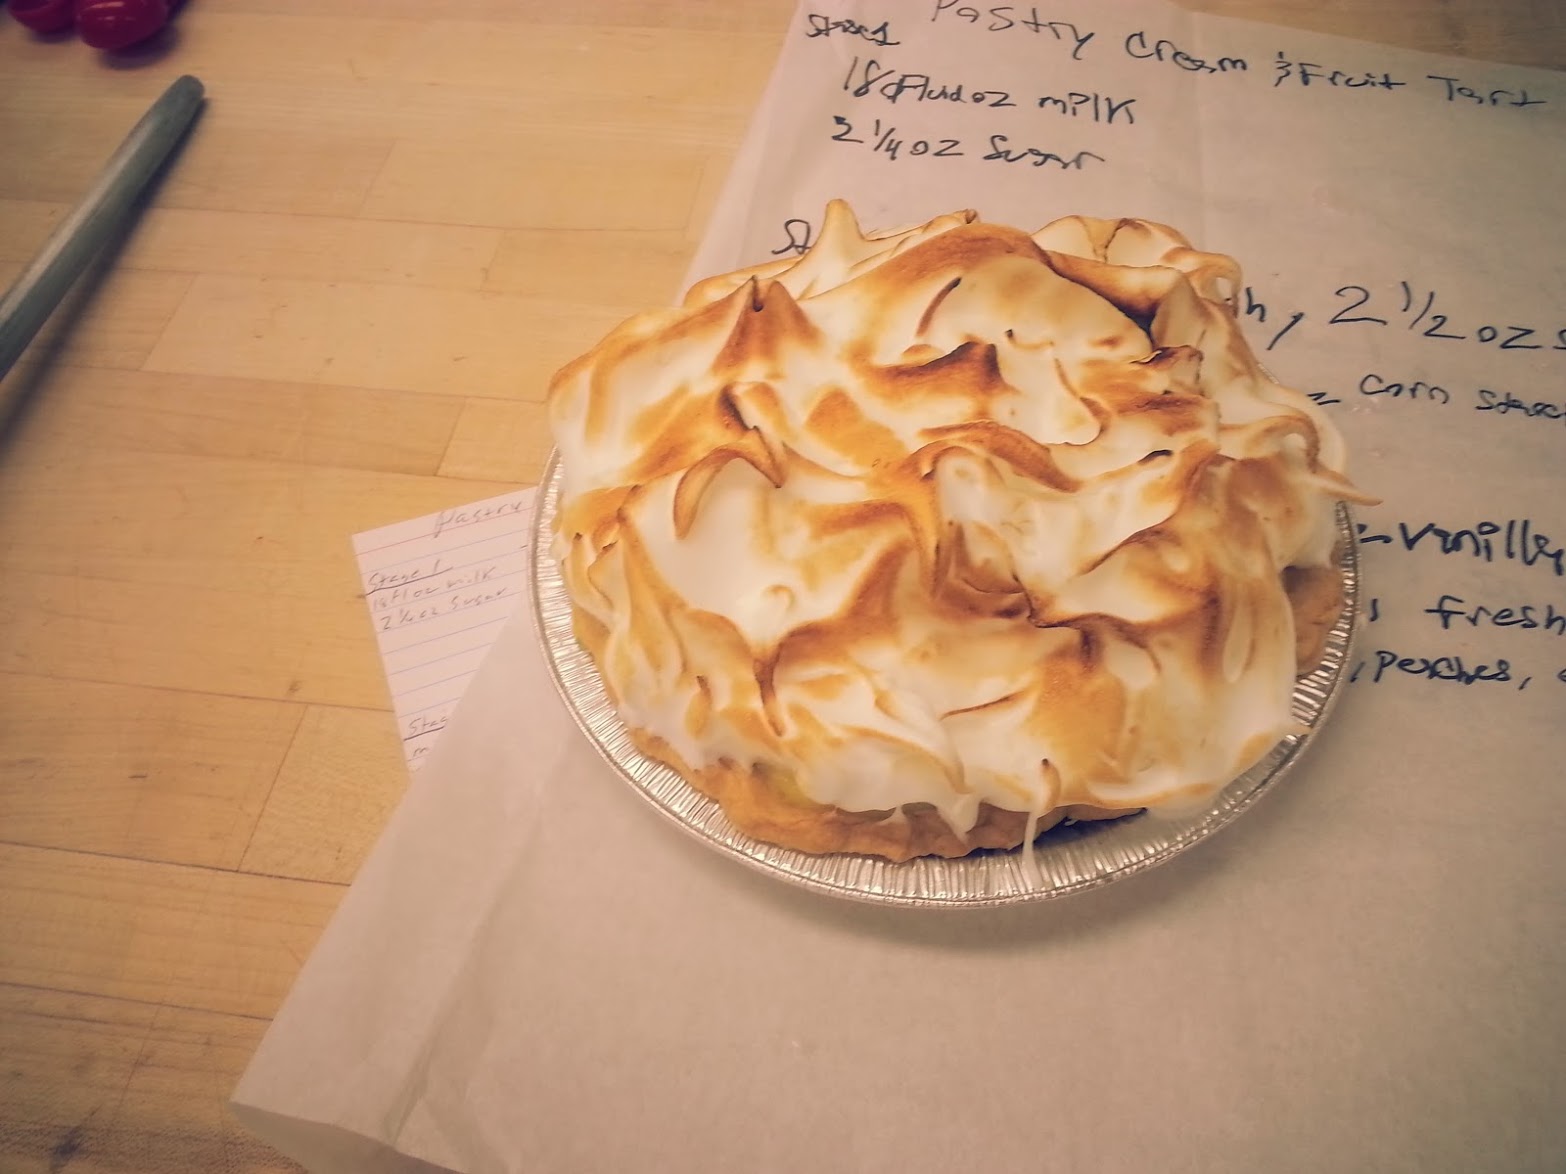 Pastry Cream & Fruit Tart
18 Fluid oz milk
2 1/4 oz Sugar
St
h, 2 1/2 ozs
z Corn Starc
- Vanilla
, fresh
, peaches,
Pastry
Stage 1
18 fl oz milk
2 1/4 oz Sugar
Stag
m